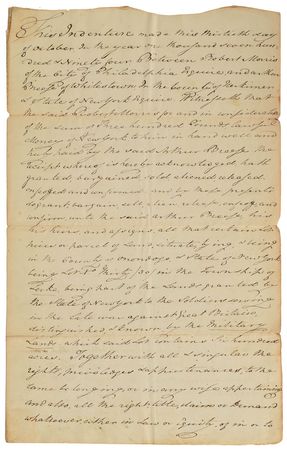 This Indenture made this thirtieth day
of October in the year one thousand seven hun
dred & Ninety four Between Robert Morris
of the City of Philadelphia Esquire and Arthur
Breese of Whitestown in the County of Herkimer
& State of New York Esquire Witnesseth that
the said Robert Morris for and in consideration
of the sum of Three hundred pounds
money of New York to him in hand well and
truly paid by the said Arthur Breese the
receipt whereof is hereby acknowledged hath
granted, bargained sold aliened released
enfeoffed and confirmed and by these presents
do grant bargain sell alien release, enfeoff and
confirm unto the said Arthur Breese, his
heirs, and assigns, all that certain lot
piece or parcel of Land, situate, lying & being
in the County of Onondaga & State of New York
being Lot No. Thirty in the Township of
Locke, being part of the Lands granted by
the State of New York to the Soldiers serving
in the late war against Great Britain,
distinguished & known by the Military
Lands which said Lot contains Six hundred
acres. Together with all & singular the
rights, priviledges & appurtenances, to the
same belonging, or in any wise appertaining
and also, all the right, title, claim or demand
whatsoever either in Law or Equity, of in or to